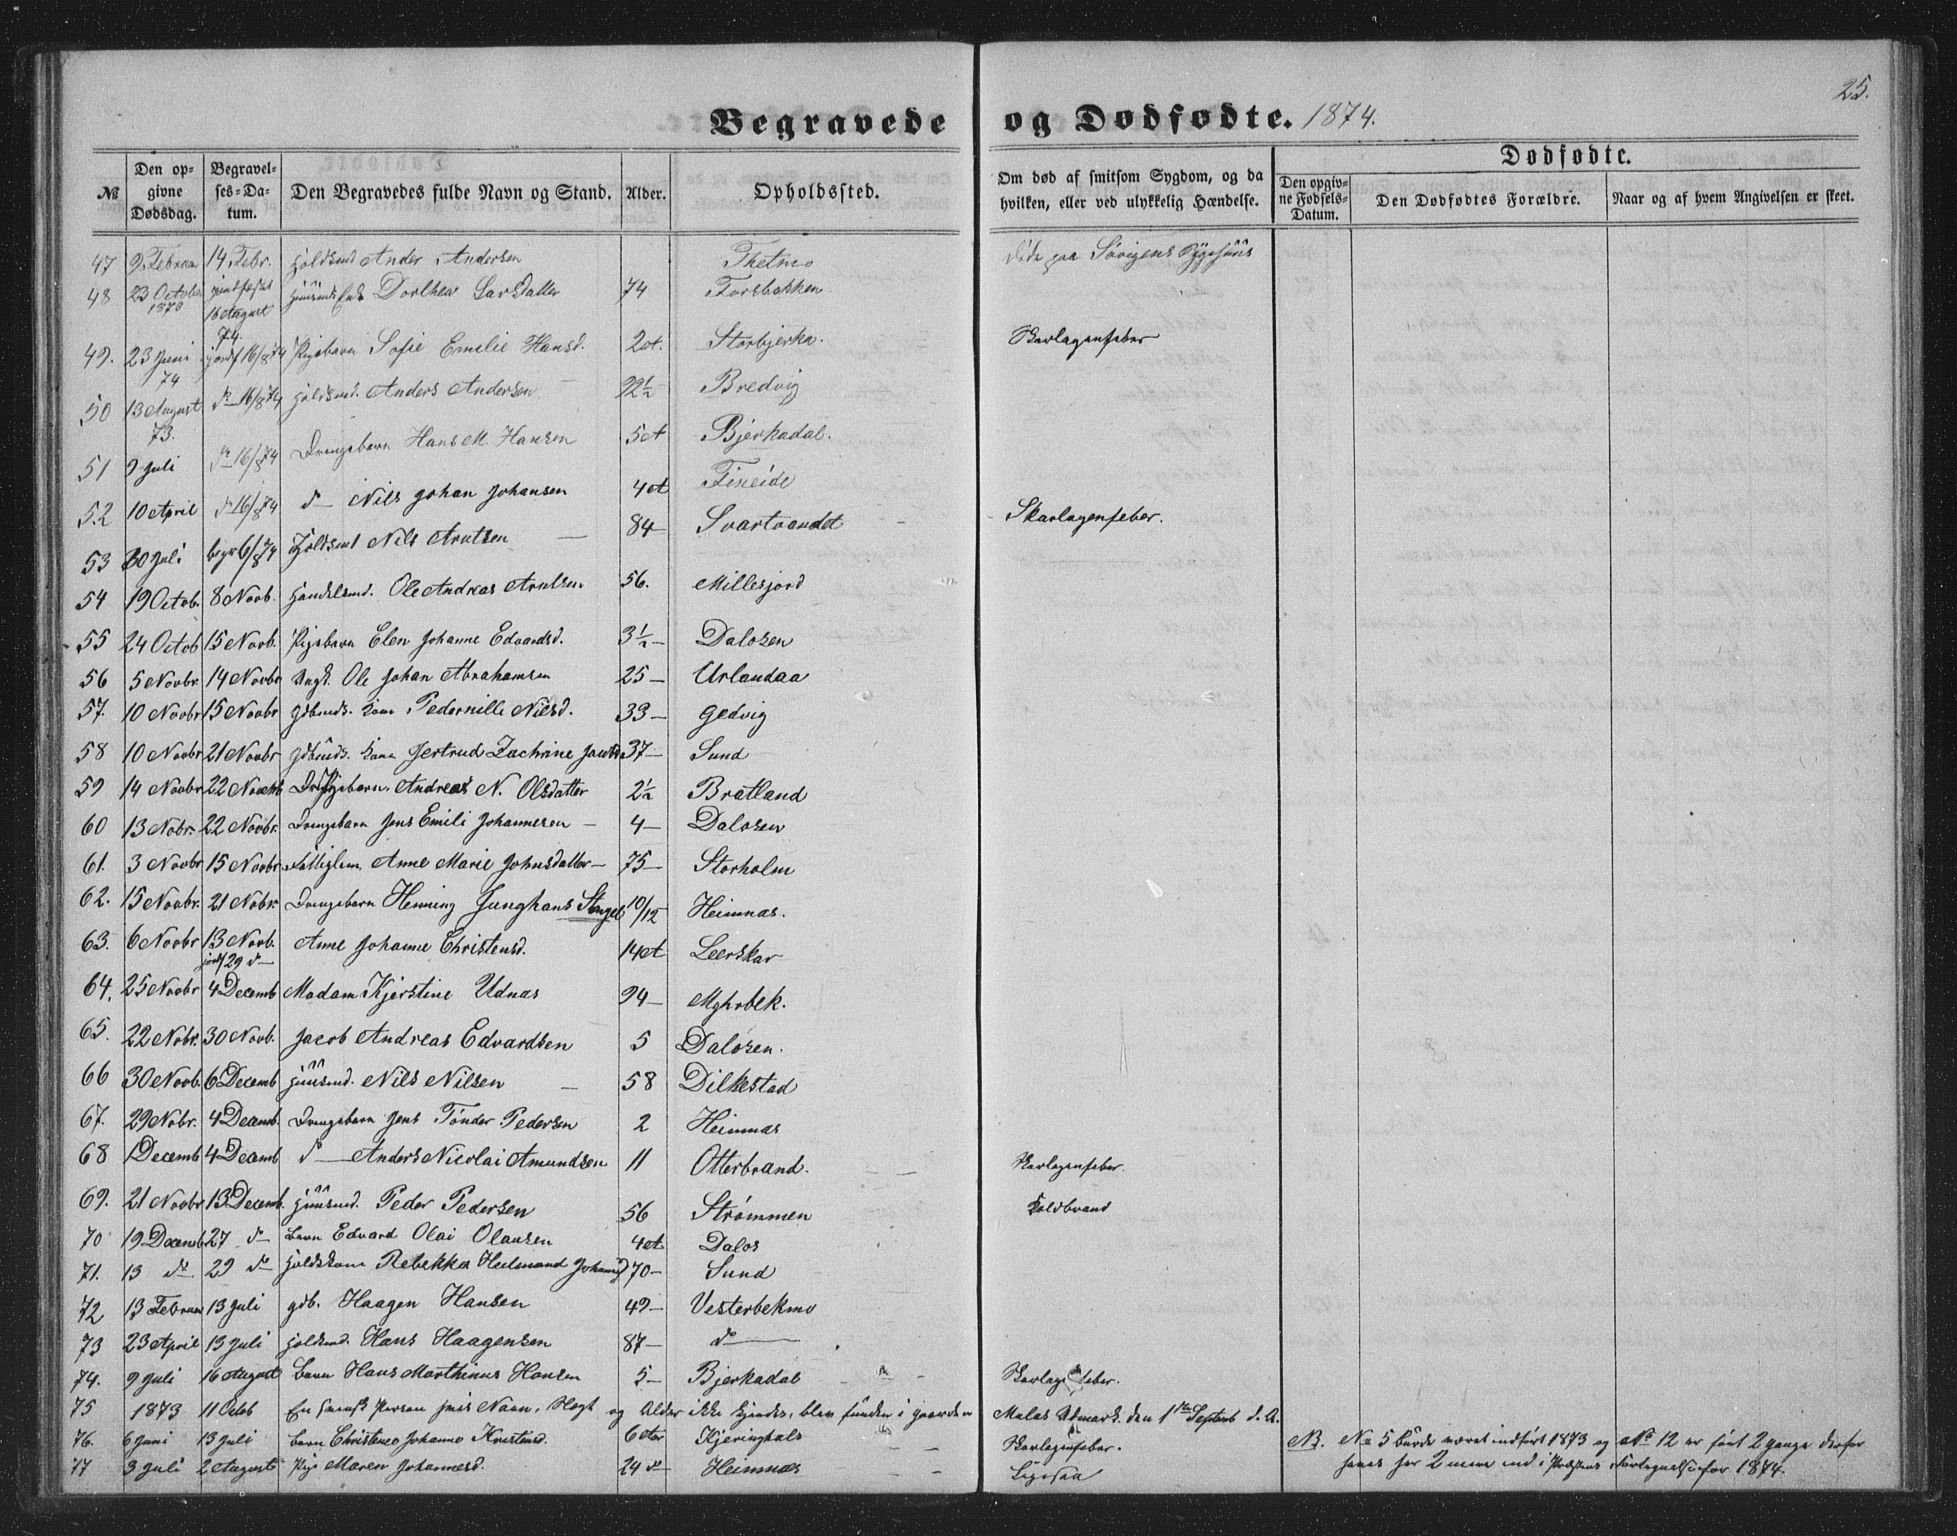 25.
Begravede og Dødfødte. 1874.
№ Den opgivne Dødsdag. Begravelses-Datum. Den Begravedes fulde Navn og Stand. Alder. Opholdssted. Om død af smitsom Sygdom, og da hvilken, eller ved ulykkelig Hændelse. Dødfødte.
Den opgivne Fødsels-Datum. Den Dødfødtes Forældre. Naar og af hvem Angivelsen er skeet.
47 9 Februar 14 Febr. Holdsmd Ander Andersen Thetmo Døde paa Sygehuus
48 23 October 1873 16 August 74. Dorthea Larsdatter 74 Forsbakken
49. 23 Juni 74 jordf 16/8 74 Pigebarn Sofie Emilie Hansd. 2 Storbjerka. Skarlagensfeber
50 13 August 73. do 16/8 74 Holdsmd. Anders Andersen 92½ Bredvig
51 9 Juli do 16/8 74 Drengebarn Hans M. Hansen 5 Bjerkadal.
52 10 April do 16/8 74 do Nils Johan Johansen 4 Fineide
53 30 Juli begr 6/8 74 Holdsmd Nils Arntsen 84 Svartvandet Skarlagensfeber.
54 19 Octob. 8 Novb. Handelsmd. Ole Andreas Arntsen 56. Millesjord
55 24 Octob 15 Novb. Pigebarn Elen Johanne Edvardsd. 3½ Dalosen
56 5 Novbr 14 Novbr Ungk. Ole Johan Abrahamsen 25 Urlandaa
57. 10 Novbr 15 Novbr Gdbmds. Kone Pedernille Nilsd. 33 Gedvig
58 10 Novbr 21 Novbr Gdbmds. Kone Gertrud Zachrine 37 Sund
59 14 Novbr 22 Novbr Pigebarn. Andreas N. Olsdatter 2½ Bratland
60 13 Nobr. 22 Novbr. Drengebarn Jens Emili Johannesen 4 Dalosen
61. 3 Novbr 15 Novbr Fattiglem Anne Marie Johnsdatter 75 Storholm
62. 15 Novbr. 21 Nobr. Drengebarn Henning Junghans 10/12 Heimnæs.
63. 6 Novbr 13 Novb. jordf 29 do Anne Johanne Christensd. 14 Leerskar
64. 25 Novbr 4 Decemb Madam Kjerstine Udnæs 94 Myhrbek.
65. 22 Nobr. 30 Novb. Jacob Andreas Edvardsen 5 Dalosen.
66 30 Novb. 6 Decemb Huusmd. Nils Nilsen 58 Dilkestad
67. 29 Nobr. 4 Decemb. Drengebarn Jens Tønder Pedersen 2 Heimnæs
68 1 Decemb 4 Decemb do Anders Nicolai Amundsen 11 Otterbrand. Skarlagensfeber.
69. 21 Novbr 13 Decemb. Huusmd. Peder Pedersen 56 Strømmen Koldbrand
70 19 Decemb 27 do Barn Edvard Olai Olausen 4 Dalos
71. 13 do 29 do Holdskone Rebekka Heelmand 70 Sund
72 13 Februar 13 Juli Gdb. Haagen Hansen 49 Vesterbekmo
73 23 April 13 Juli Holdsmd. Hans Haagensen 87 do
74. 9 Juli 16 August Barn Hans Marthinus Hansen 5 Bjerkadal Skarlagensfeber.
75 1873 11 Octob En svensk Person hvis Navn, og Alder ikke kjendes, blev funden i Gaarden Udmark. den 1ste Septemb d. A.
76. 6 Juni 13 Juli Barn Christence Johanne Kristensd. 6 Kjeringhals Skarlagensfeber.
77 3 Juli 2 August Pige Maren Johannesd. 24 do Heimnæs Ligesaa
NB. No 5 burde været indført 1873 og No 12 er ført 2 gange derfor
her 2 mere end i Præstens Fortegnelse for 1874.